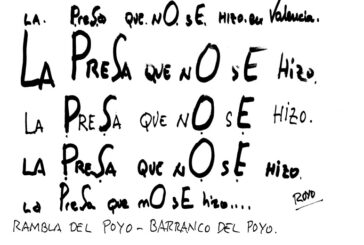 LA. PreSa que. nO. SE. HIZO. en Valencia.
LA PReSa QUE nO SE HIZO.
LA PReSa QUE nO SE HIZO.
LA PReSa QUE nO SE HIZO.
La PreSa que nO SE hizo....
ROYO
RAMBLA DEL POYO - BARRANCO DEL POYO.